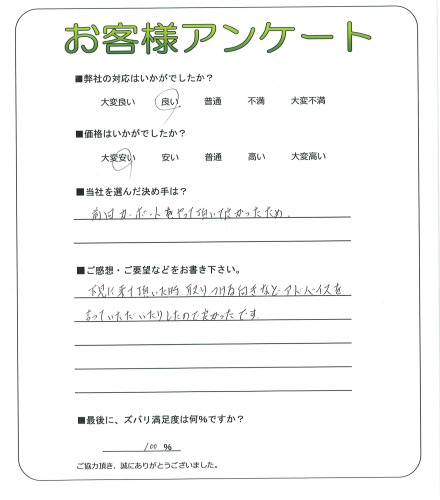 お客様アンケート
■弊社の対応はいかがでしたか？
大変良い 良い 普通 不満 大変不満
■価格はいかがでしたか？
大変安い 安い 普通 高い 大変高い
■当社を選んだ決め手は？
前回カーポートをやって頂いて良かったため。
■ご感想・ご要望などをお書き下さい。
下見に来て頂いた時 取りつけ方向きなど アドバイスを
言っていただいたりしたので良かったです。
■最後に、ズバリ満足度は何%ですか？
100 %
ご協力頂き、誠にありがとうございました。